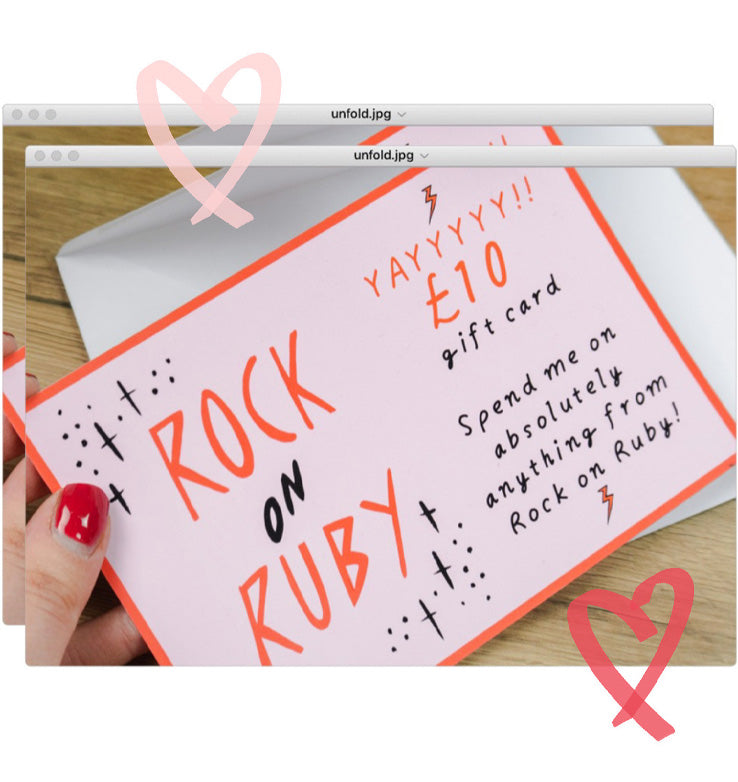 unfold.jpg
unfold.jpg
YAYYYYY!!
£10
gift card
Spend me on
absolutely
anything from
Rock on Ruby!
ROCK
ON
RUBY